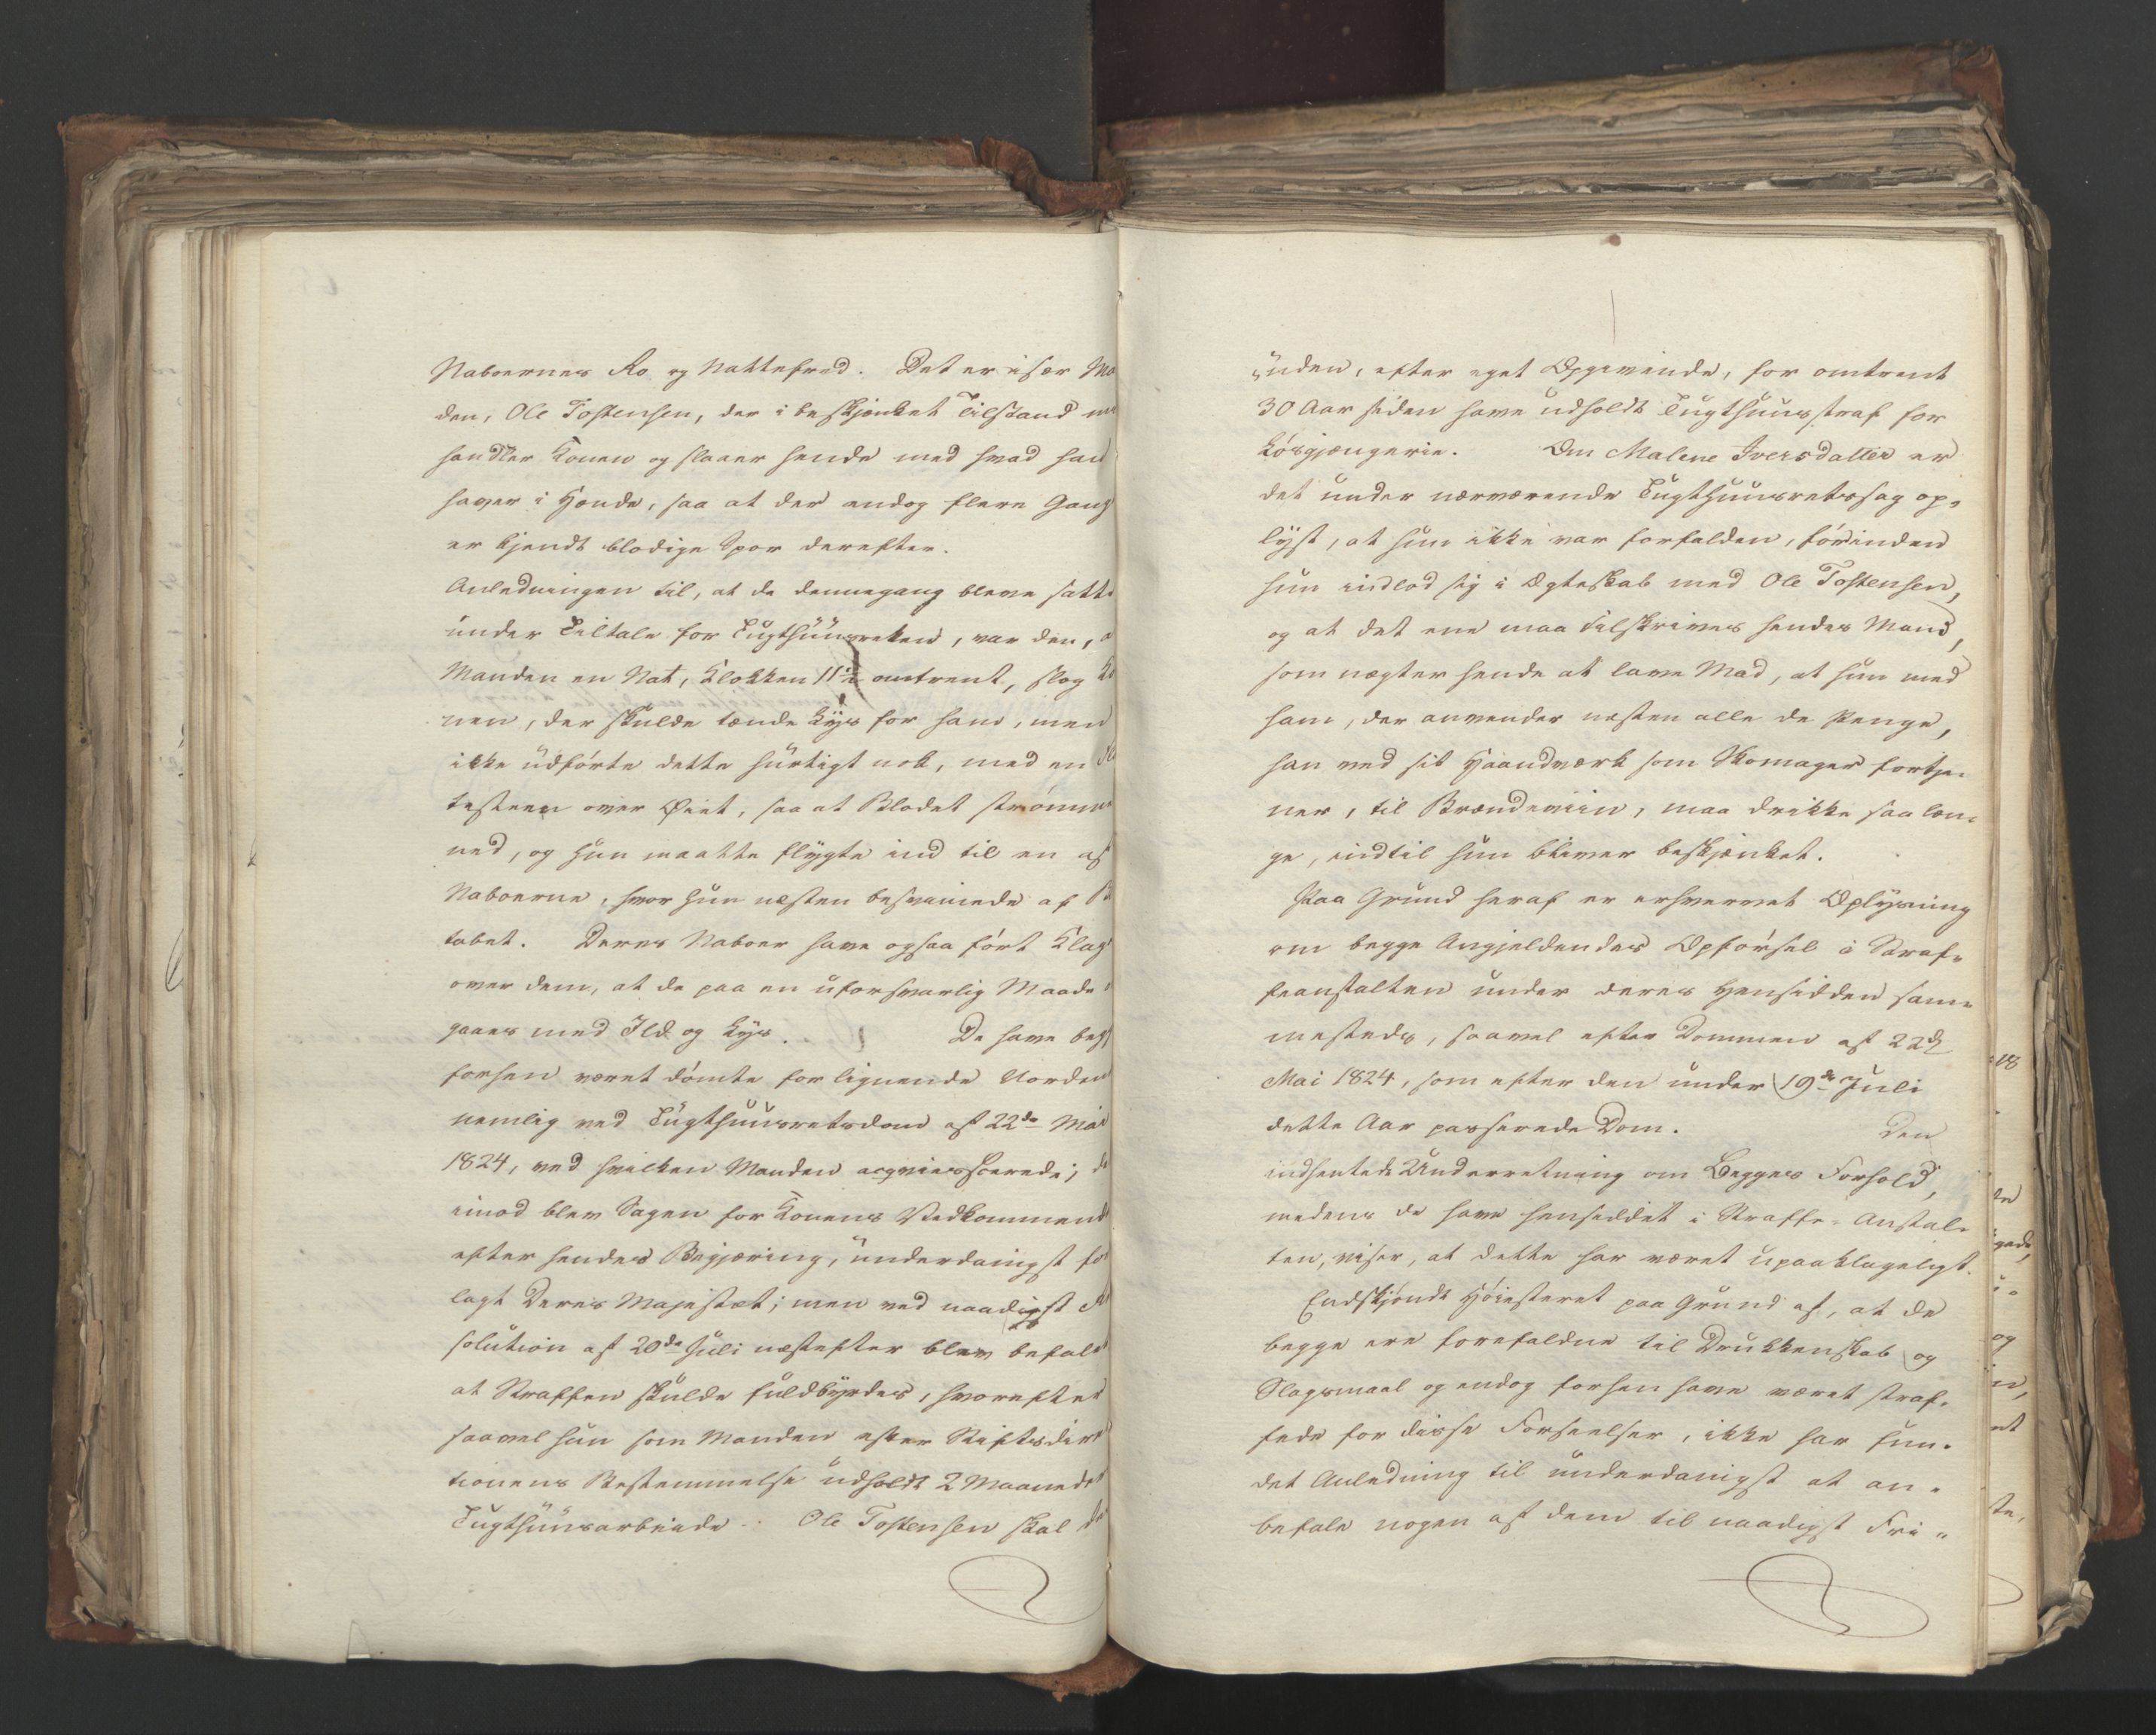 Naboernes Ro og Nattefred. Det er især Ma
den, Ole Tostensen, der i beskjænket Tilstand mis
handler Konen og slaaer hende med hvad han
haver i Hænde, saa at der endog flere Gang
er kjendt blodige Spor derefter.
Anledningen til, at de dennegang bleve satte
under Tiltale for Tugthuusretten, var den, a
Manden en Nat, Klokken 11½ omtrent, slog Ko
nen, der skulde tænde Lys for ham, men
ikke udførte dette hurtigt nok, med en
testeen over Øiet, saa at Blodet strømme
ned, og hun maatte flygte ind til en af
Naboerne, hvor hun næsten besvimede af B
tabet. Deres Naboer have ogsaa ført Klag
over dem, at de paa en uforsvarlig Maade
gaaer med Ild og Lys. De have beg
forhen været dømte for lignende Uorden
nemlig ved Tugthuusretsdom af 22de Mai
1824, ved hvilken Manden acqviesscerede; de
imod blev Sagen for Konens Vedkommende
efter hendes Begjæring, underdanigst fo
lagt Deres Majestæt; men ved naadigst Re
solution af 20de Juli næstefter blev befalet
at Straffen skulde fuldbyrdes, hvorefter
saavel hun som Manden efter Stiftsdirec
tionens Bestemmelse udholdt 2 Maaneders
Tugthuusarbeide. Ole Tostensen skal des
uden, efter eget Opgivende, for omtrent
30 Aar siden have udholdt Tugthuusstraf for
Løsgjængerie. Om Malene Iversdatter er
det under nærværende Tugthuusretssag op-
lyst, at hun ikke var forfalden, førinden
hun indlod sig i Ægteskab med Ole Tostensen,
og at det ene maa tilskrives hendes Mand,
som nægter hende at lave Mad, at hun med
ham, der anvender næsten alle de Penge,
han ved sit Haandværk som Skomager fortje-
ner, til Brændeviin, maa drikke saa læn-
ge, indtil hun bliver beskjænket.
Paa Grund heraf er erhvervet Oplysning
om begge Angjeldendes Opførsel i Straf-
feanstalten under deres Hensidden sam-
mesteds, saavel efter Dommen af 22de
Mai 1824, som efter den under 19de Juli
dette Aar passerede Dom. Den
indhentede Underretning om Begges Forhold,
medens de have hensiddet i Straffe-Anstal-
ten, viser, at dette har været upaaklageligt.
Endskjøndt Høiesteret paa Grund af, at de
begge ere forefaldne til Drukkenskab og
Slagsmaal og endog forhen have været straf-
fede for disse Forseelser, ikke har fun-
det Anledning til underdanigst at an-
befale nogen af dem til naadigst Fri-